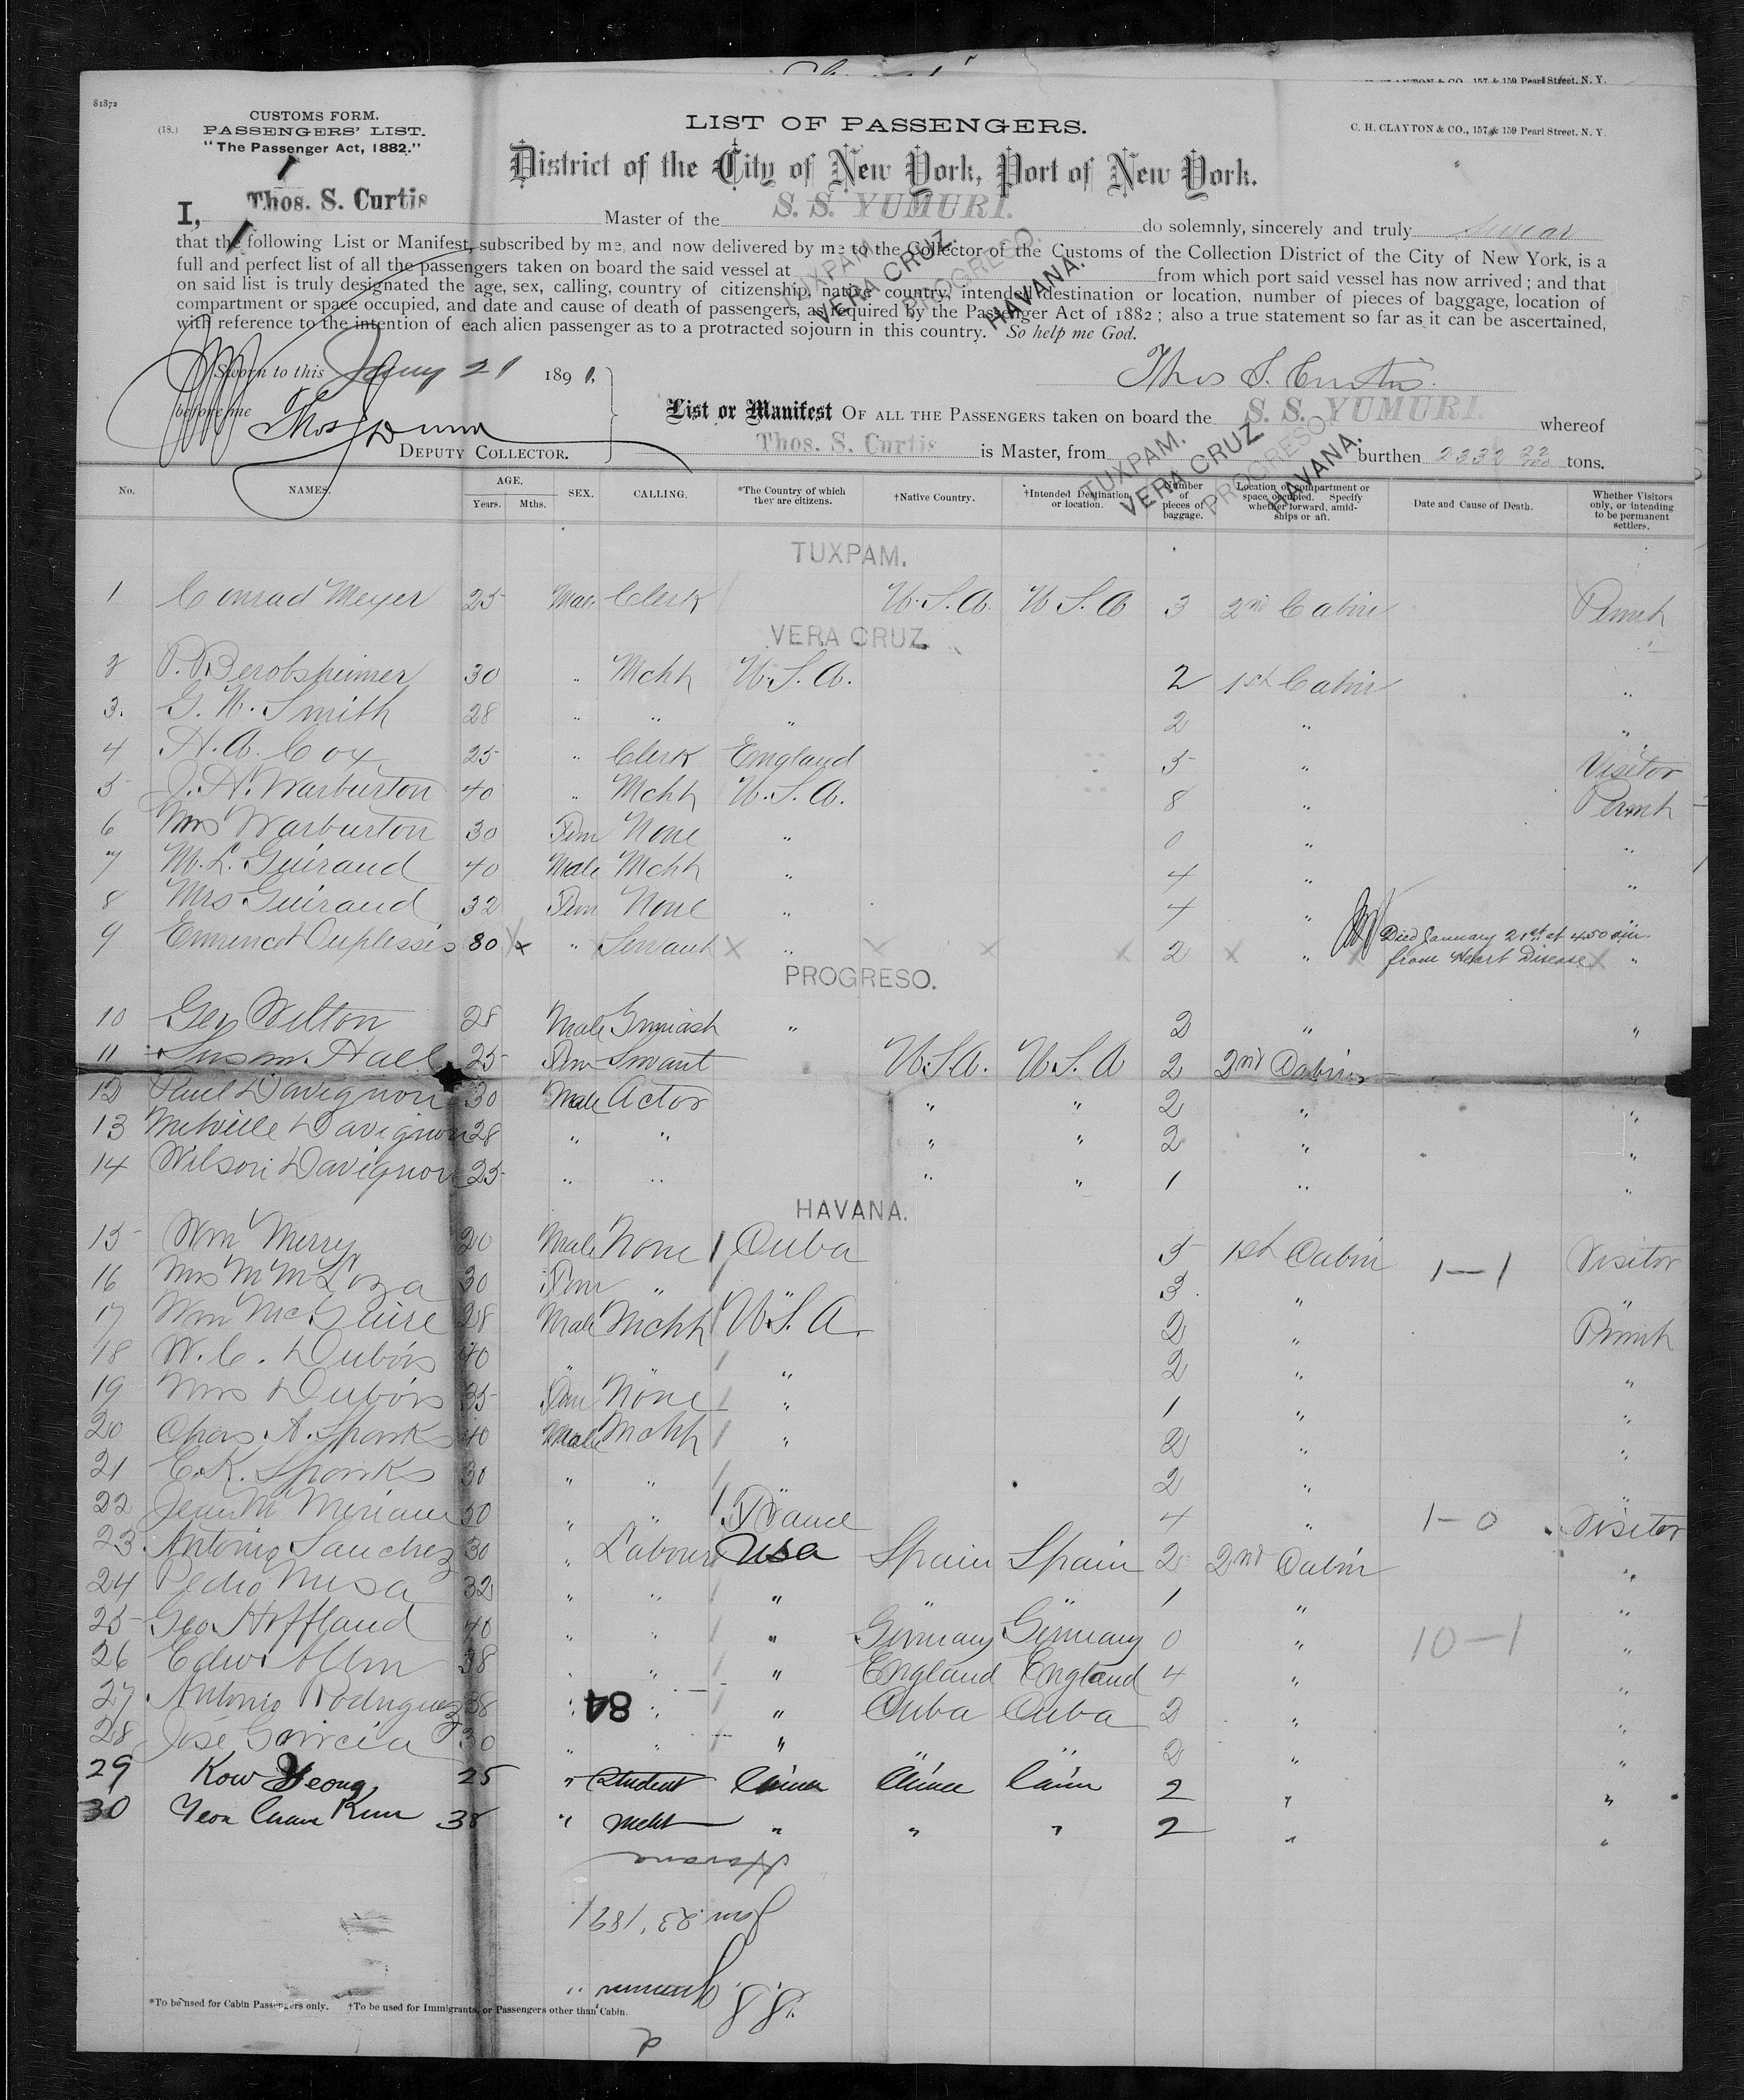 C. H. CLAYTON & CO., 157 & 159 Pearl Street, N. Y.
81872
(18.)
CUSTOMS FORM.
PASSENGERS' LIST.
"The Passenger Act, 1882."
LIST OF PASSENGERS.
C. H. CLAYTON & CO., 157 & 159 Pearl Street, N. Y.
District of the City of New York, Port of New York.
I, Thos. S. Curtis Master of the S. S. YUMURI. do solemnly, sincerely and truly swear
that the following List or Manifest, subscribed by me, and now delivered by me to the Collector of the Customs of the Collection District of the City of New York, is a
full and perfect list of all the passengers taken on board the said vessel at TUXPAM. VERA CRUZ. PROGRESO. HAVANA. from which port said vessel has now arrived; and that
on said list is truly designated the age, sex, calling, country of citizenship, native country, intended destination or location, number of pieces of baggage, location of
compartment or space occupied, and date and cause of death of passengers, as required by the Passenger Act of 1882; also a true statement so far as it can be ascertained,
with reference to the intention of each alien passenger as to a protracted sojourn in this country. So help me God.
Sworn to this Jany 21 1891,
Thos S. Curtis.
before me Thos Dunn
DEPUTY COLLECTOR.
List or Manifest OF ALL THE PASSENGERS taken on board the S. S. YUMURI. whereof
Thos. S. Curtis is Master, from TUXPAM. VERA CRUZ PROGRESO. HAVANA. burthen 2332 33/100 tons.
No. NAMES. AGE. Years. Mths. SEX. CALLING. *The Country of which they are citizens. †Native Country. †Intended Destination or location. Number of pieces of baggage. Location of compartment or space occupied. Specify whether forward, amidships or aft. Date and Cause of Death. Whether Visitors only, or intending to be permanent settlers.
TUXPAM.
1 Conrad Meyer 25 Male Clerk U.S.A. U.S.A 3 2nd Cabin Permt
VERA CRUZ.
2 P. Berolsheimer 30 " Mcht U.S.A. 2 1st Cabin "
3. G. W. Smith 28 " " " 2 " "
4 H. A. Cox 25 " Clerk England 5 " Visitor
5 J. H. Warburton 40 " Mcht U.S.A. 8 " Permt
6 Mrs Warburton 30 Fem None " 0 " "
7 M. L. Guiraud 40 Male Mcht " 4 " "
8 Mrs Guiraud 32 Fem None " 4 "
9 Emmence Duplessis 80 " Servant " 2 " Died January 21st at 4.50 a.m. from Heart Disease "
PROGRESO.
10 Geo Wilton 28 Male Gymnast " 2 " "
11 Susan Hall 25 Fem Servant U.S.A. U.S.A 2 2nd Cabin
12 Paul Davignon 30 Male Actor " " 2 " "
13 Davignon 28 " " " " 2 " "
14 Wilson Davignon 25 " " " " 1 " "
HAVANA.
15 Wm Merry 20 Male None Cuba 5 1st Cabin 1—1 Visitor
16 Mrs M M Loza 30 Fem " " 3 " "
17 Wm McGuire 28 Male Mcht U.S.A. 2 " Permt
18 W. C. Dubois 40 " " " 2 " "
19 Mrs Dubois 35 Fem None " 1 " "
20 Chas. A. Sparks 40 Male Mcht " 2 " "
21 E. K. Sparks 30 " " " 2 " "
22 Jean M 50 " " France 4 " 1—0 Visitor
23 Antonio Sanchez 30 " Labourer USA Spain Spain 2 2nd Cabin "
24 Pedro Mesa 32 " " " " " 1 " "
25 Geo Hoffland 40 " " " Germany Germany 0 " 10—1 "
26 Edw Allen 38 " " " England England 4 " "
27 Antonio Rodriguez 38 " 84 " " Cuba Cuba 2 " "
28 José Garcia 30 " " " " " 2 " "
29 Kow Yeong 25 " Student China China China 2 " "
30 Yeon Chan Kum 38 " Mcht " " " 2 " "
Havana
Jan 23, 1891.
S.S. Yumuri
*To be used for Cabin Passengers only. †To be used for Immigrants, or Passengers other than Cabin.